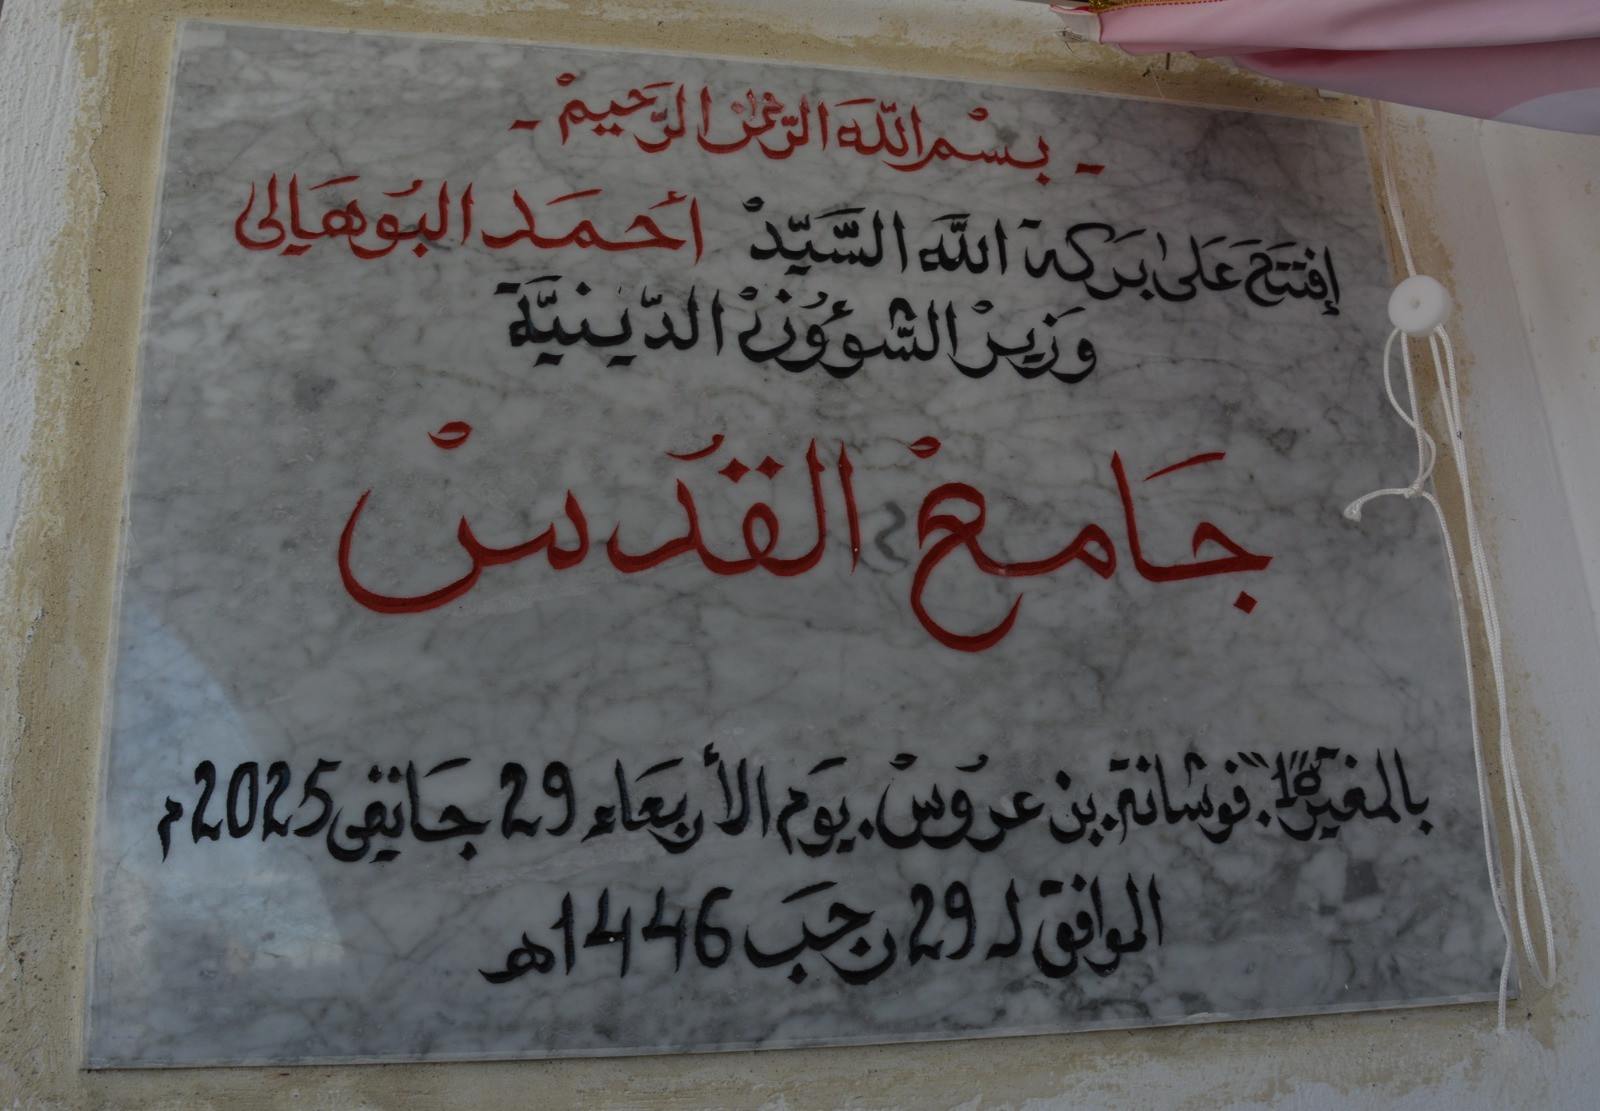 - بِسْمِ اللَّهِ الرَّحْمٰنِ الرَّحِيمْ -
إفتَتَحَ عَلىٰ بَركة اللَّه السَّيِّدْ أحَمَد البُوهَالي
وَزيرْ الشُّؤُونْ الدّينيَّة
جَامعْ القُدسْ
بالمغيرة "10" فوشانة. بن عرُوسْ. يَوم الأربعَاء 29 جَانفي 2025م
الموافق لـ 29 رجَبَ 1446هـ